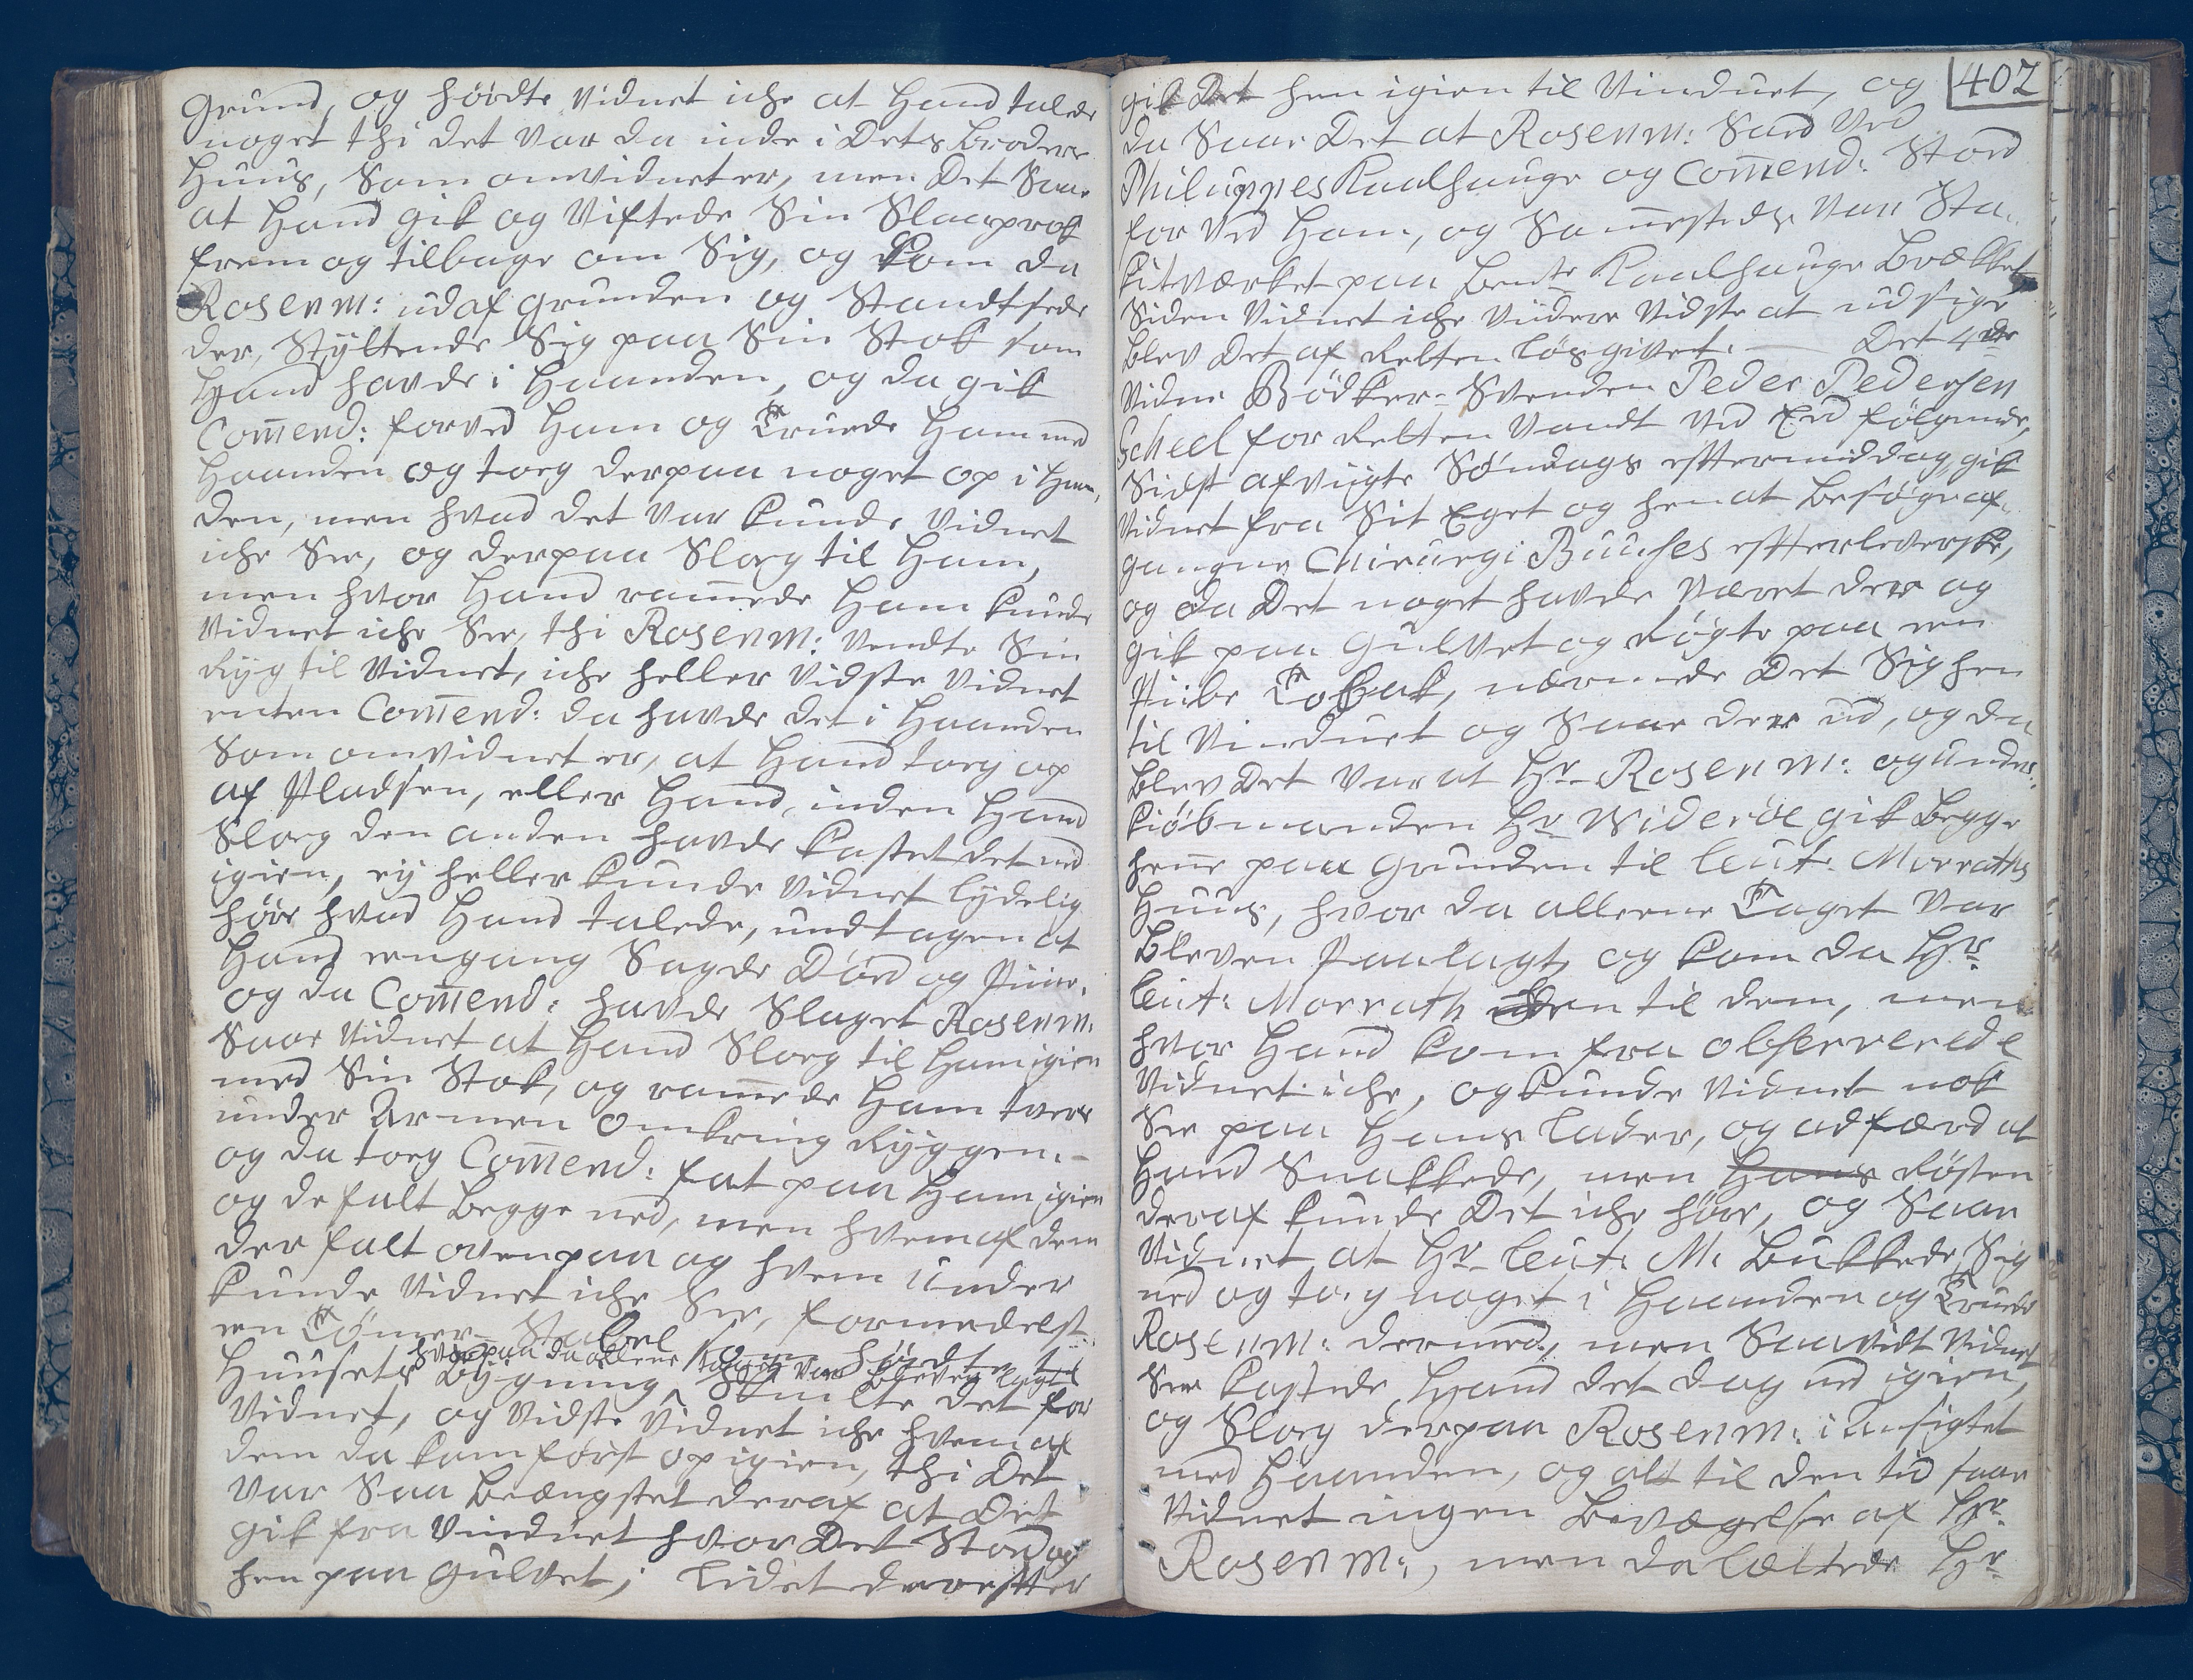 Grund, og hørdte Vidnet iche at Hand talede
noget thi det var da inde i Dets Broders
Huus, Som omvidnet er, men Det Saae
at Hand gik og Viftede Sin Slaaprok
frem og tilbage om Sig, og kom da
Rosenm: ud af grunden og Standtsede
der, Støttende Sig paa Sin Stok som
Hand havde i Haanden, og da gik
Com̅end: forved Ham og Truede Ham med
Haanden og toeg derpaa noget op i Haan,
den, men hvad det var kunde Vidnet
iche See, og derpaa Sloeg til Ham,
men hvor Hand ram̅ede Ham kunde
Vidnet iche See, thi Rosenm: Vendte Sin
Ryg til Vidnet, iche heller Vidste Vidnet
enten Com̅end: da havde det i Haanden
Som omvidnet er, at Hand toeg op
af Pladsen, eller Hand, inden Hand
Sloeg den anden havde kastet det ned
igien, ey heller kunde Vidnet lydelig
høre hvad Hand talede, undtagen at
Hand eengang Sagde Død og Piine,
og da Com̅end: havde Slaget Rosenm:
Saae Vidnet at Hand Sloeg til Ham igien
med Sin Stok, og ram̅ede Ham tvers
under Armen omkring Ryggen. -
og da toeg Com̅end: fat paa Ham igien
og de falt begge ned, men hvem af dem
der falt ovenpaa og hvem under
kunde Vidnet iche See, formedelst
een Tømer-Stabel som hørdte til
hvorpaa da allene taget var bleven lagt
Huusets Bygning, Skiulte det for
Vidnet, og Vidste Vidnet iche hvem af
dem da kom først op igien, thi Det
var Saa beængstet deraf at Det
gik fra Vinduet hvor Det Stod og
hen paa Gulvet; lidet derefter
402
gik Det hen igien til Vinduet, og
da Saae Det at Rosenm: Sad ved
Philippes Kaalhauge og Com̅end: Stod
for ved Ham, og Sam̅esteds var Sta-
kitværket paa bemte Kaalhauge Brækket
Siden Vidnet iche Viidere Vidste at udsige
blev Det af Retten løsgivet. — Det 4de
Vidne Bødker-Svenden Peder Pedersen
Scheel for Retten Vandt ved Eed følgende,
Sidst afvigte Søndags eftermiddag gik
Vidnet fra Sit Eget og hen at besøge af-
gangne Chirurgi Buuses efterleverske,
og da Det noget havde Været der og
gik paa Gulvet og Røgte paa een
Piibe Tobak, nærmede Det Sig hen
til Vinduet og Saae der ud, og da
blev Det var at Hr Rosenm: og under-
kiøbmanden Hr Widerøe gik begge
hene paa Grunden til leut: Morraths
Huus, hvor da allene Taget var
bleven Paalagt, og kom da Hr
leut: Morrath hen til dem, men
hvor Hand kom fra observerede
Vidnet iche, og kunde Vidnet nok
See paa Hans lader, og adfærd at
Hand Snakkede, men Hans Røsten
deraf kunde Det iche høre, og Saae
Vidnet at Hr leut. M. bukkede Sig
ned og toeg noget i Haanden og Truede
Rosenm: dermed, men Saavidt Vidnet
Saae kastede Hand det dog ned igien,
og Sloeg derpaa Rosenm: i Ansigtet
med Haanden, og alt til den tid saae
Vidnet ingen Bevægelse af Hr
Rosenm:, men da lættede Hr